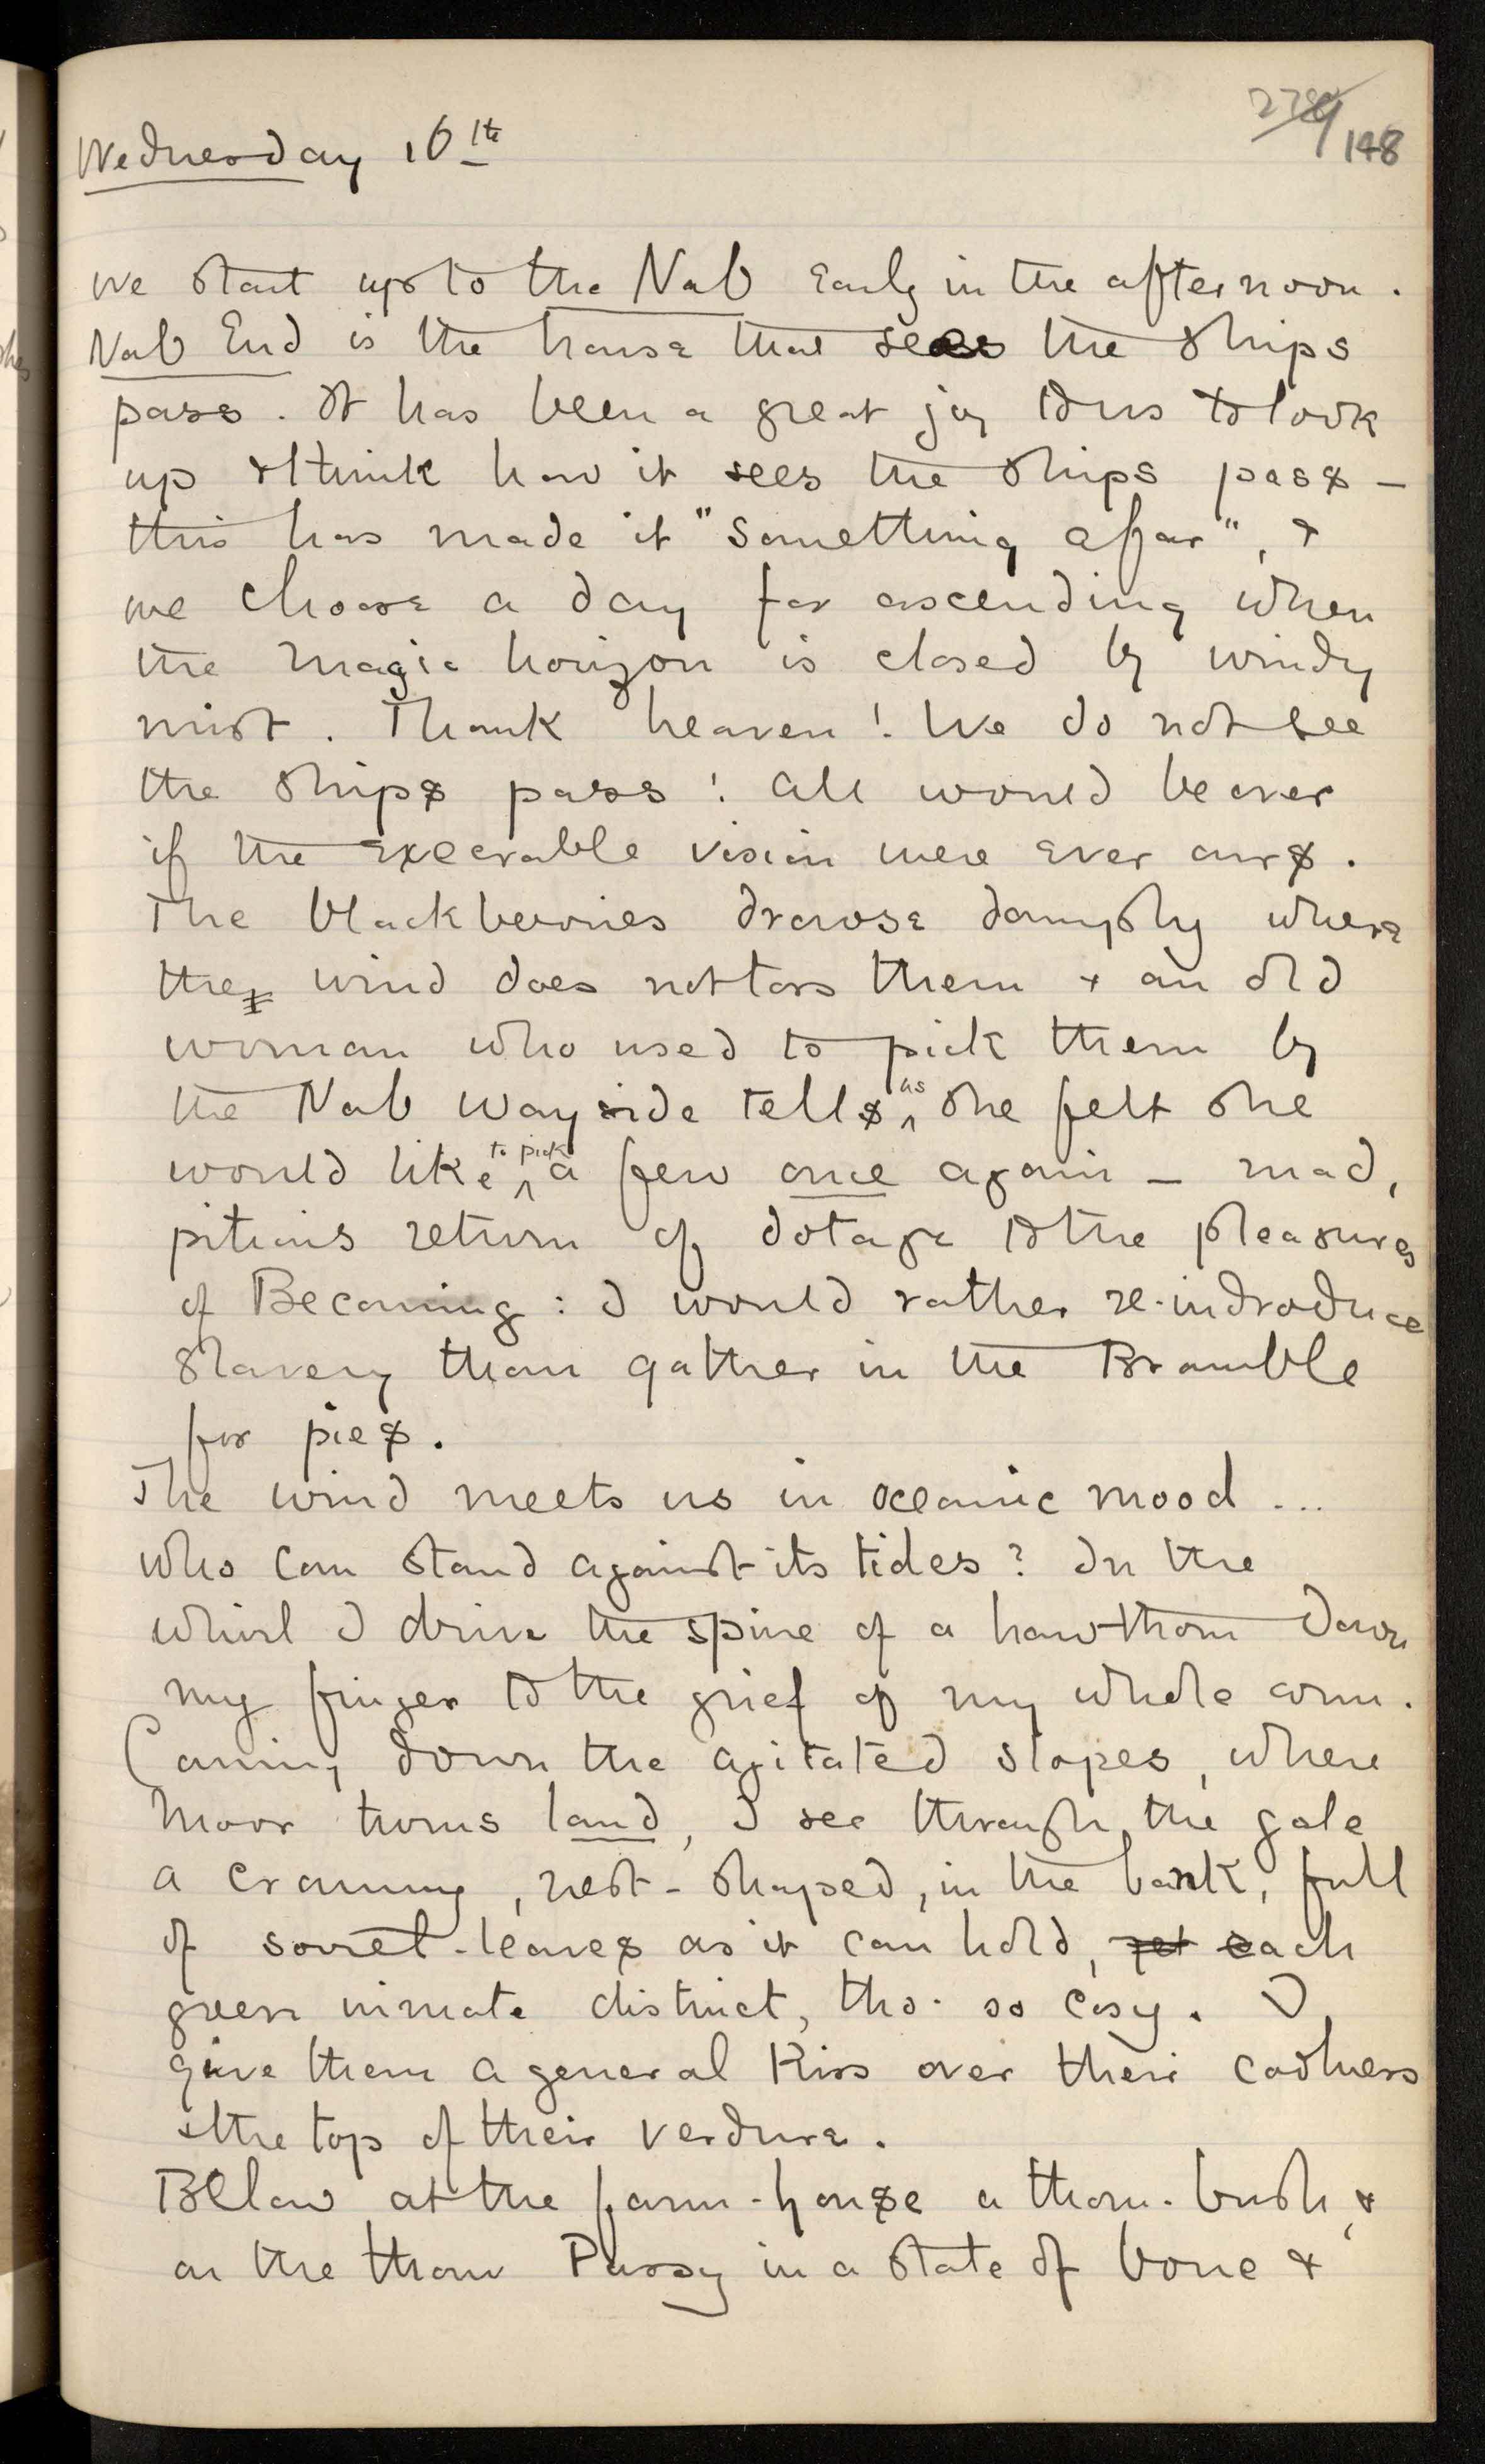 Wednesday 16th
148
We start up to the Nab early in the afternoon.
Nab End is the house that sees the ships
pass. It has been a great joy to us to look
up & think how it sees the ships pass –
this has made it "something afar", &
we choose a day for ascending when
the magic horizon is closed by windy
mist. Thank heaven! We do not see
the ships pass! All would be over
if the execrable vision were ever ours.
The blackberries drowse damply where
the wind does not toss them & an old
woman who used to pick them by
the Nab wayside tells us she felt she
would like to pick a few once again – mad,
piteous return of dotage to the pleasures
of Becoming: I would rather re-indroduce
slavery than gather in the Bramble
for pies.
The wind meets us in oceanic mood ...
who can stand against its tides? In the
whirl I drive the spine of a hawthorn down
my finger to the grief of my whole arm.
Coming down the agitated slopes, where
moor turns land, I see through the gale
a cranny, nest-shaped, in the bank, full
of sorrel-leaves as it can hold, yet each
green inmate distinct, tho' so cosy. I
give them a general kiss over their coolness
& the top of their verdure.
Below at the farm-house a thorn-bush, &
on the thorn Pussy in a state of bone &